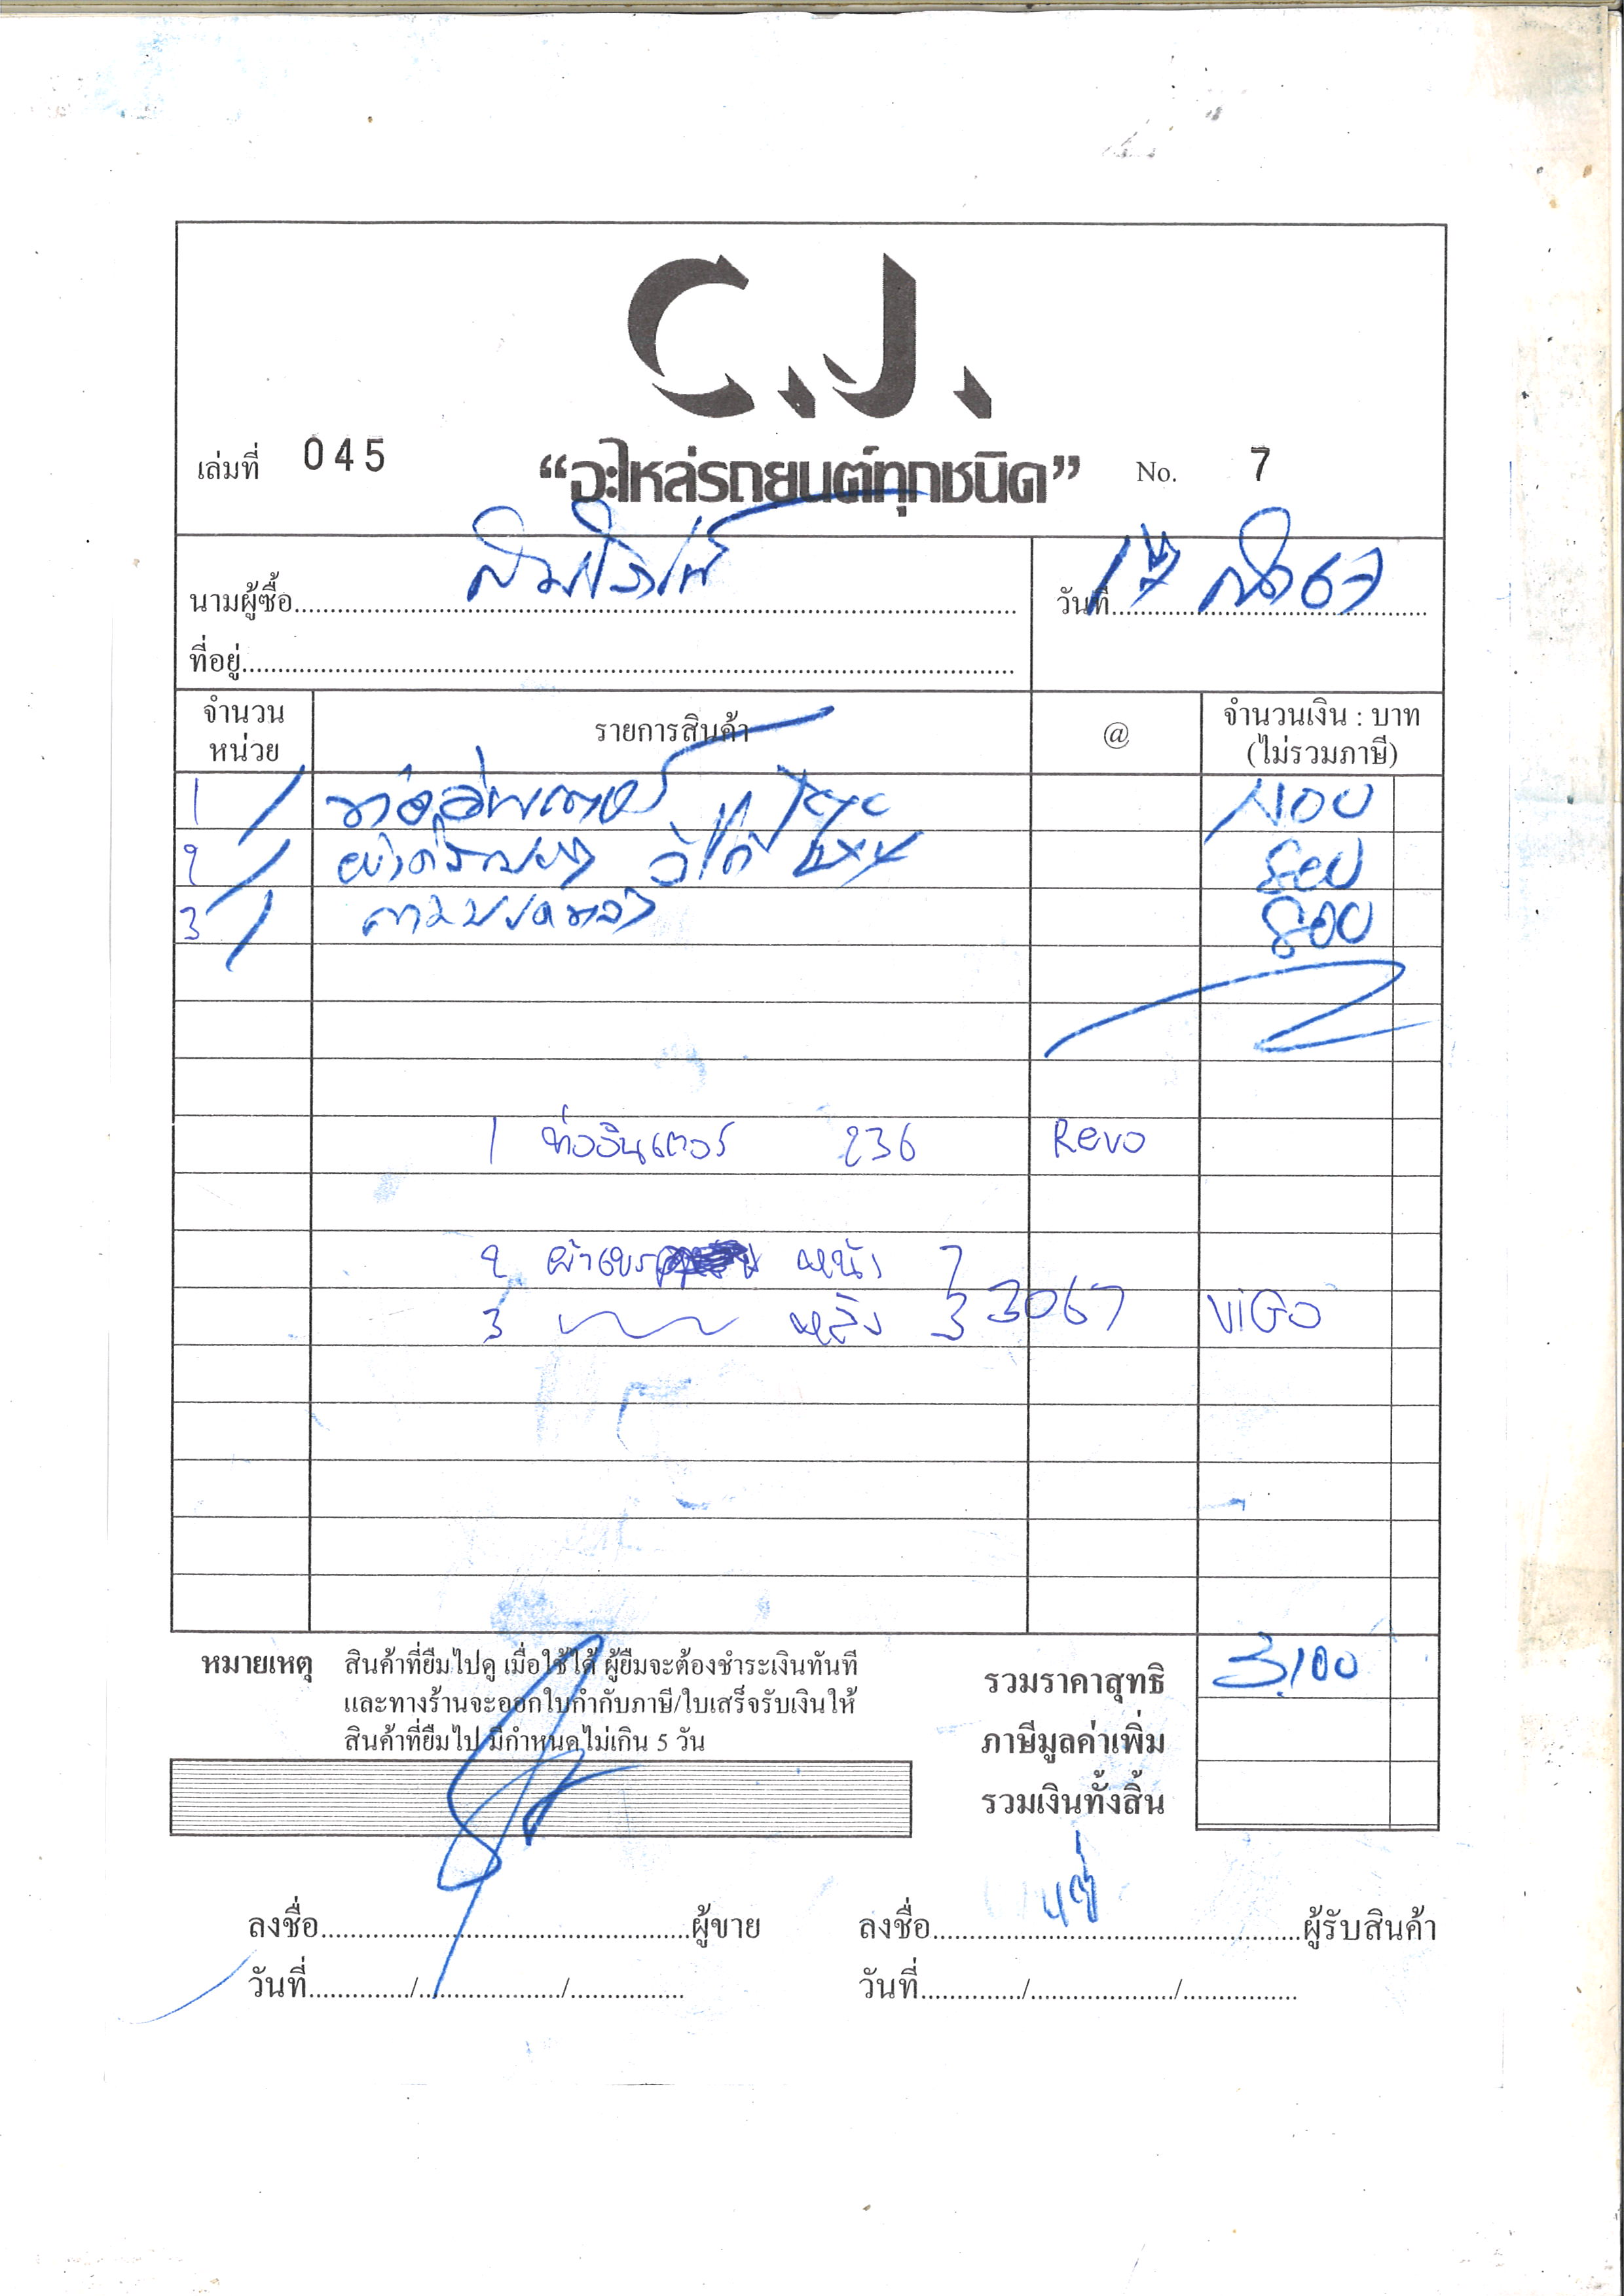 C.J.
เล่มที่ 045 “อะไหล่รถยนต์ทุกชนิด” No. 7
นามผู้ซื้อ
วันที่ 67
ที่อยู่
จำนวนหน่วย รายการสินค้า @ จำนวนเงิน : บาท (ไม่รวมภาษี)
1
2 800
3 800
1 ท่ออินเตอร์ 236 Revo
2 ผ้าเบรค หน้า
3 หลัง 3067 ViGo
หมายเหตุ สินค้าที่ยืมไปดู เมื่อใช้ได้ ผู้ยืมจะต้องชำระเงินทันที
และทางร้านจะออกใบกำกับภาษี/ใบเสร็จรับเงินให้
สินค้าที่ยืมไป มีกำหนดไม่เกิน 5 วัน
รวมราคาสุทธิ 3,100
ภาษีมูลค่าเพิ่ม
รวมเงินทั้งสิ้น
ลงชื่อ ผู้ขาย ลงชื่อ ผู้รับสินค้า
วันที่ / / วันที่ / /